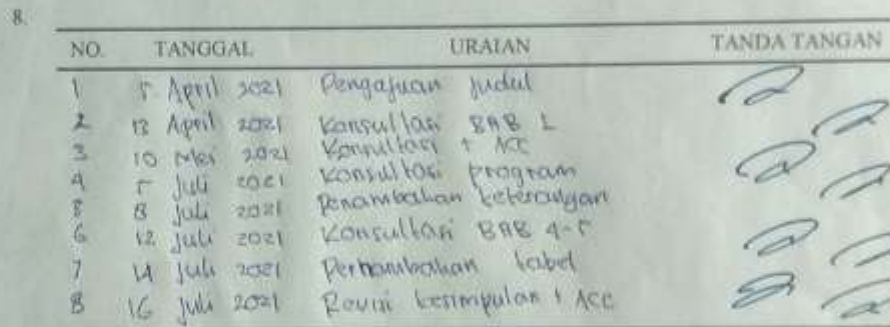 8.
NO. TANGGAL URAIAN TANDA TANGAN
1 5 April 2021 Pengajuan Judul
2 13 April 2021 Konsultasi BAB 1
3 10 Mei 2021 Konsultasi + ACC
4 5 Juli 2021 Konsultasi program
5 8 Juli 2021 Penambahan keterangan
6 12 Juli 2021 Konsultasi BAB 4-5
7 14 Juli 2021 Penambahan tabel
8 16 Juli 2021 Revisi kesimpulan + ACC